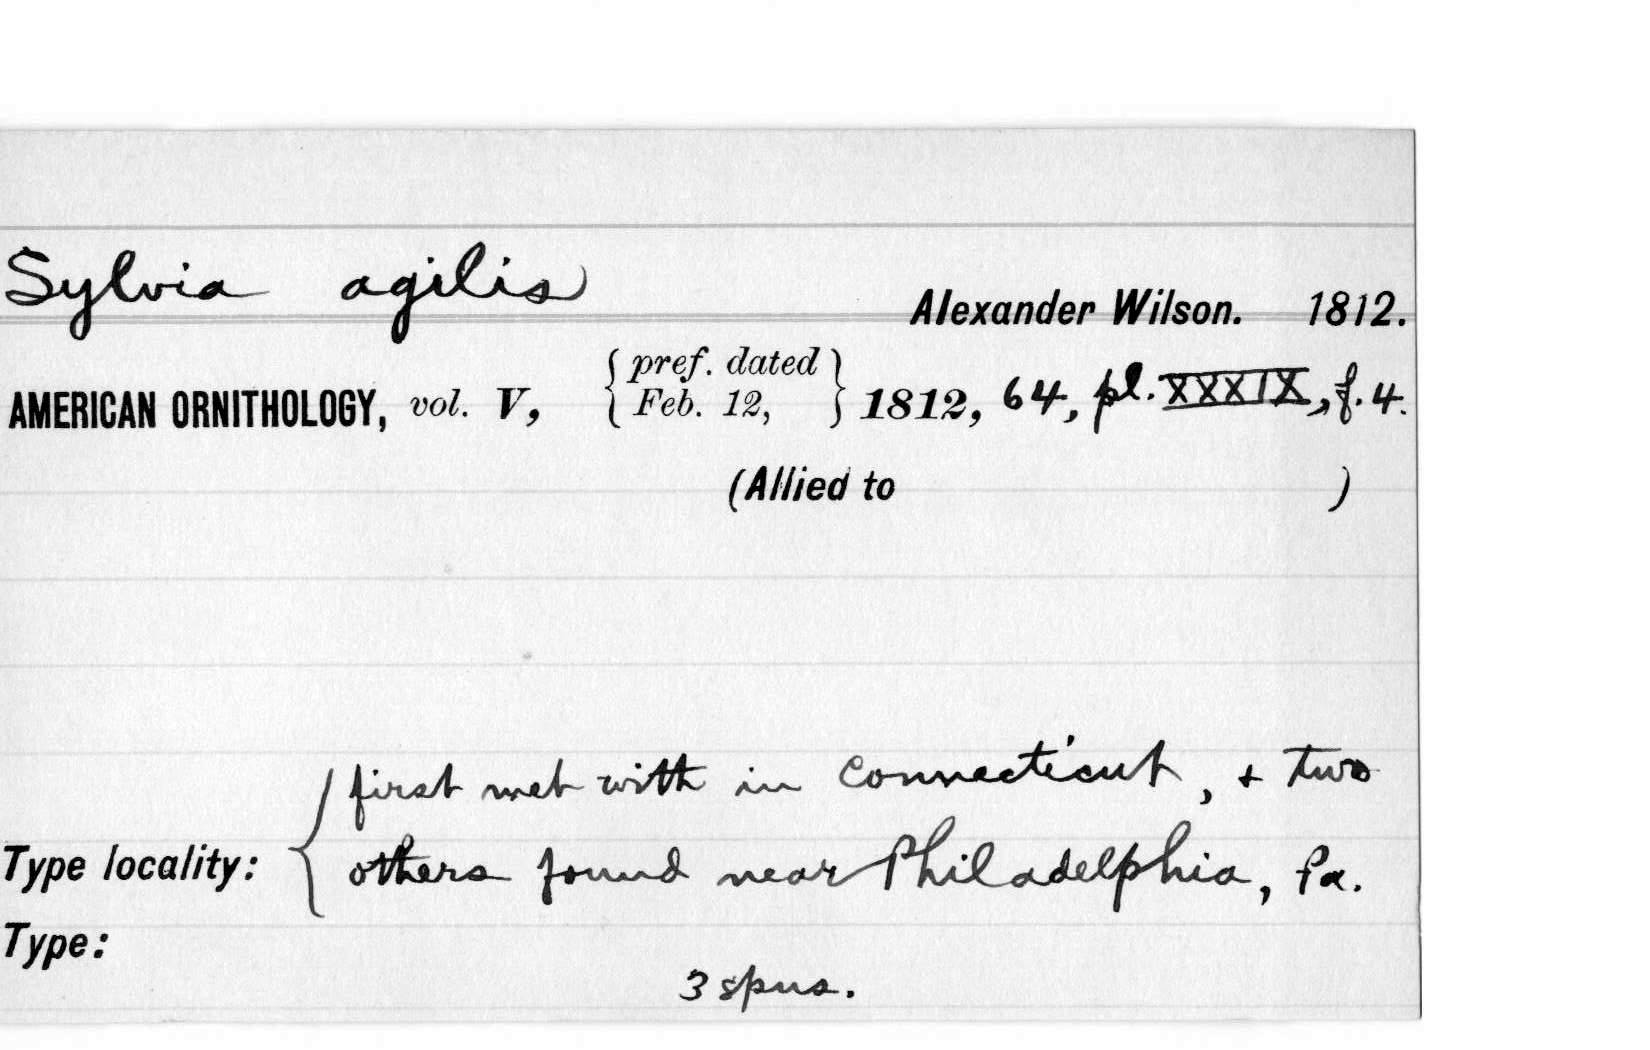 Sylvia agilis
Alexander Wilson. 1812.
AMERICAN ORNITHOLOGY, vol. V, { pref. dated Feb. 12, } 1812, 64, pl. XXXIX, f. 4.
(Allied to )
Type locality: { first met with in Connecticut, + two
others found near Philadelphia, Pa.
Type:
3 spns.